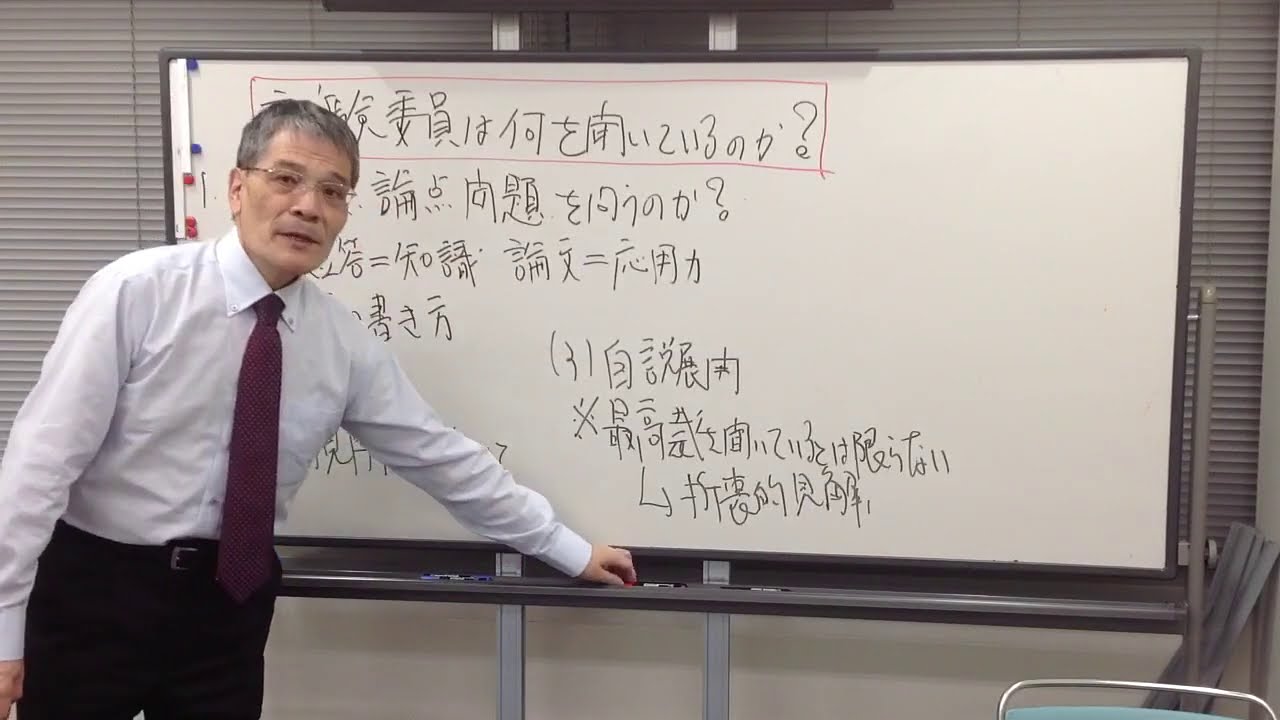 験委員は何を聞いているのか?
1.
論点問題を問うのか?
答=知識 論文=応用力
書き方
(3)自説展開
※最高裁を聞いているとは限らない
↳折衷的見解